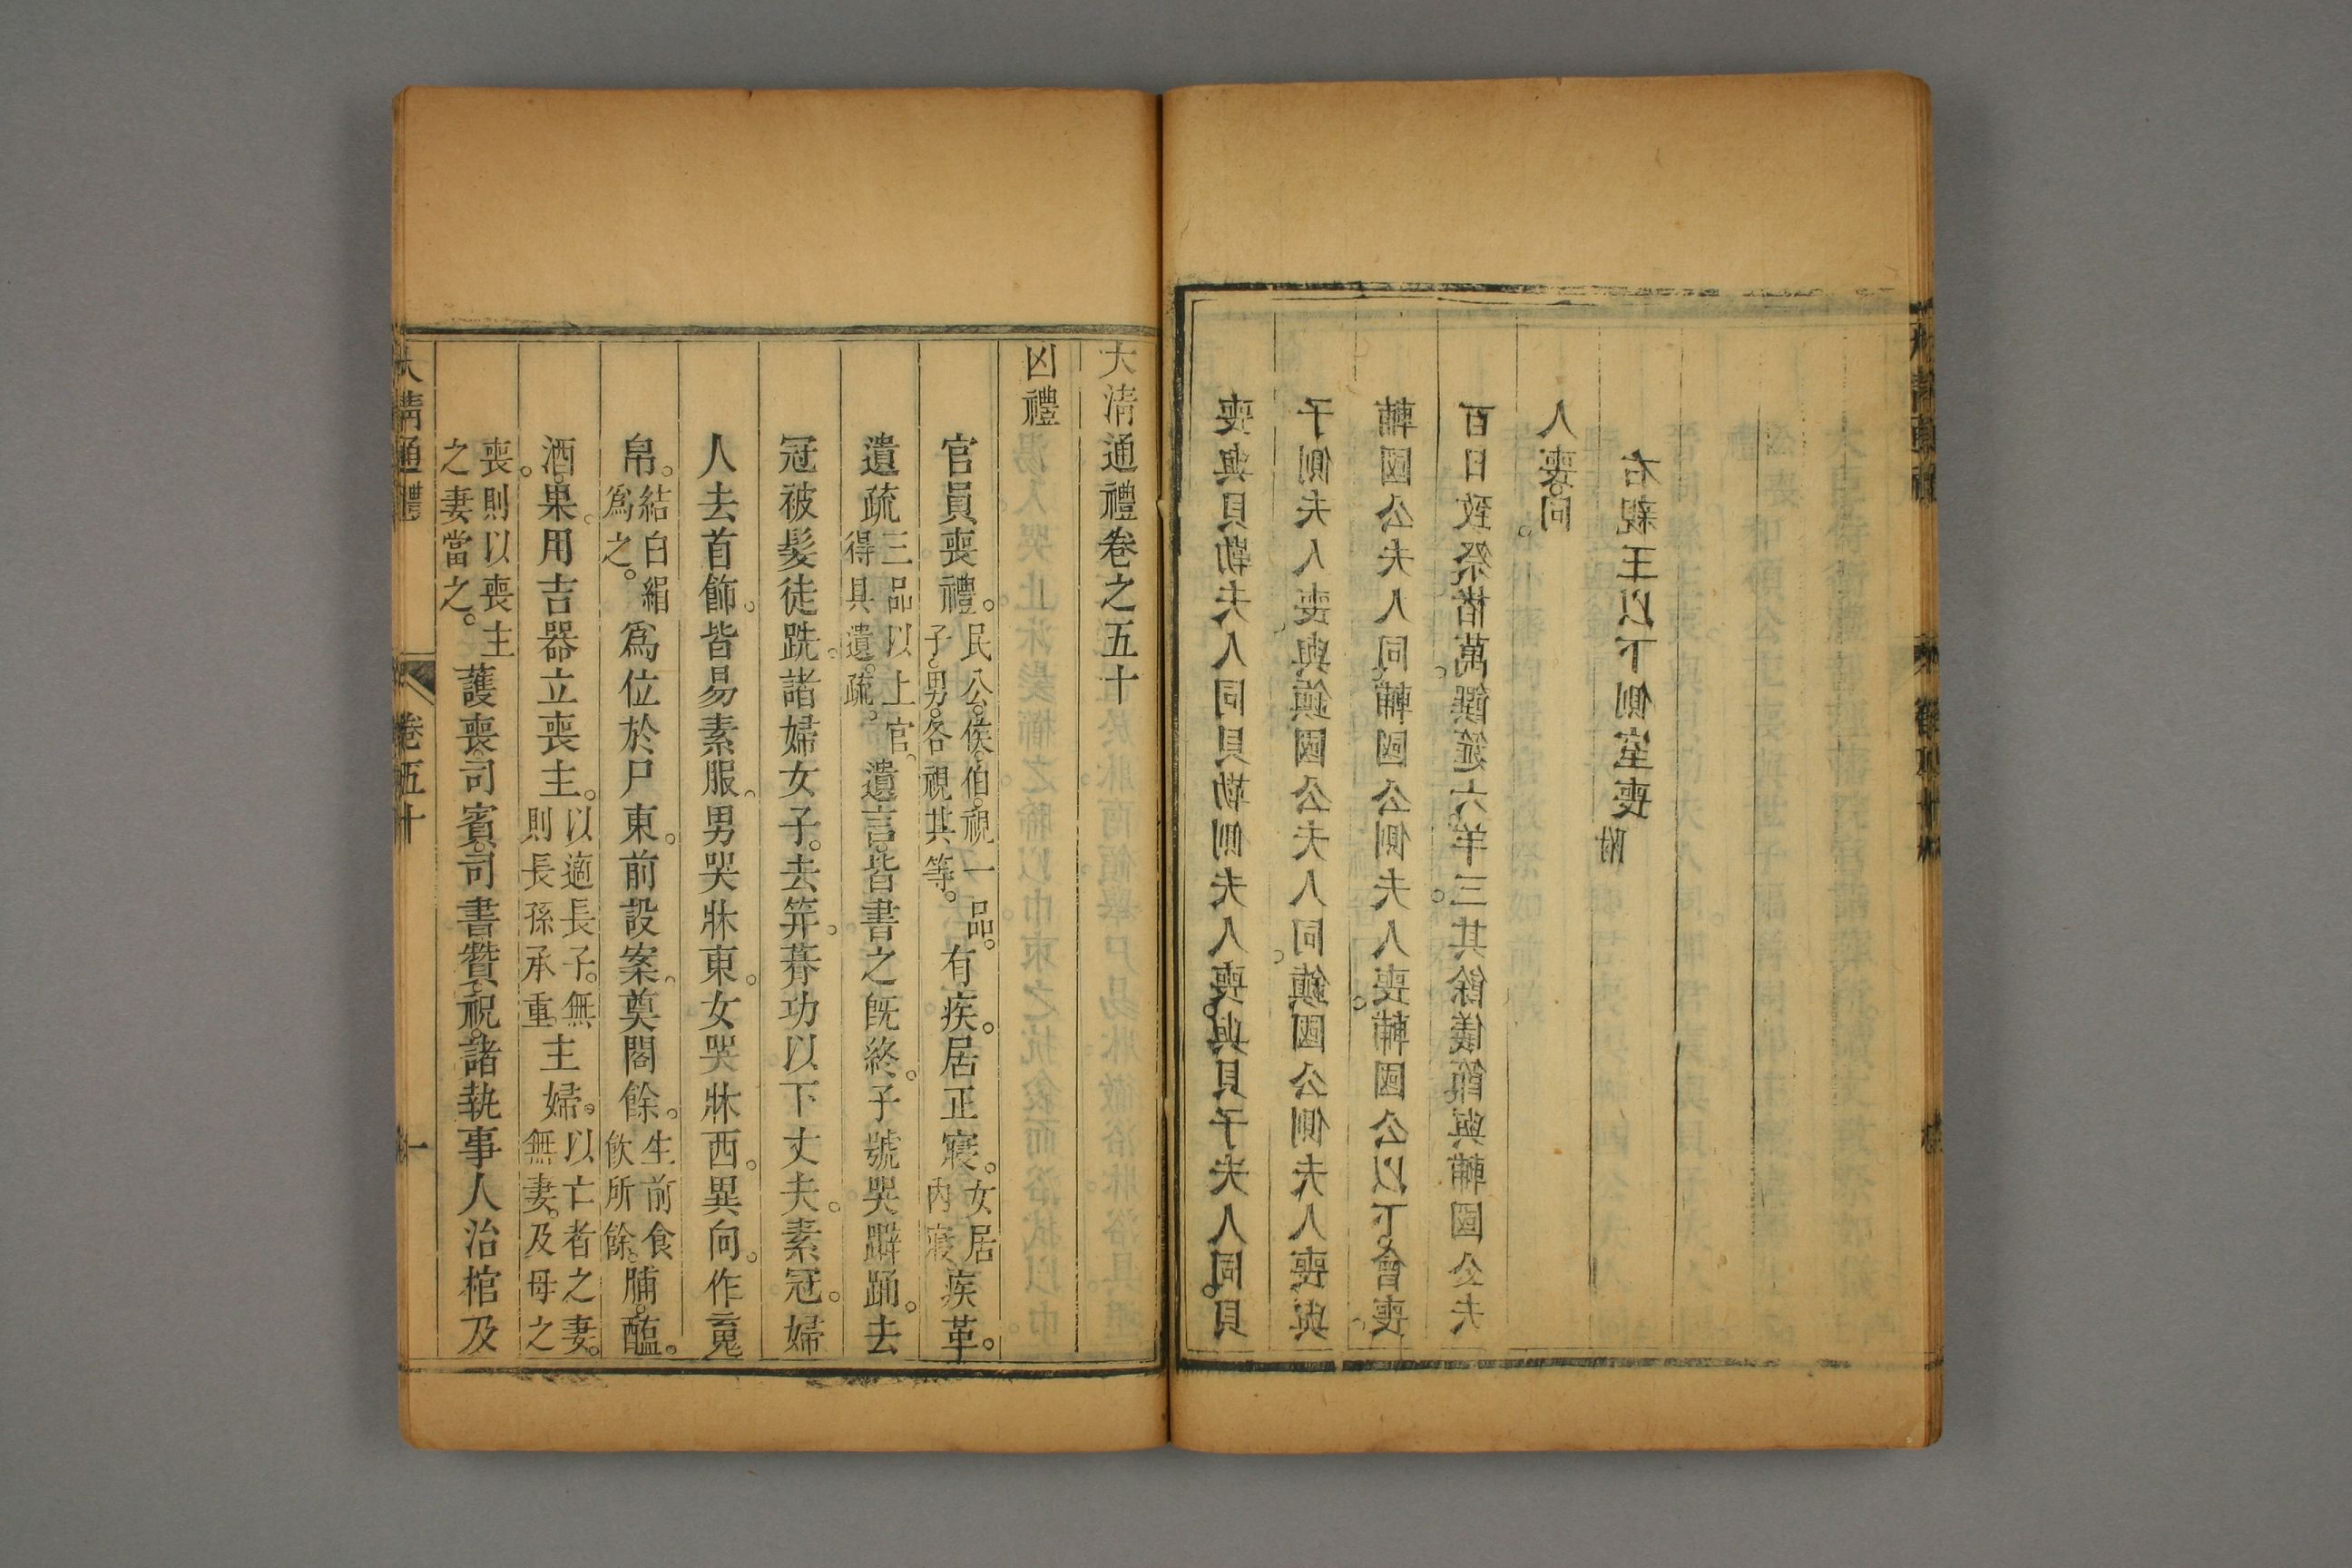 喪與貝勒夫人同貝勒側夫人喪。與貝子夫人同。貝
子側夫人喪與鎮國公夫人同。鎮國公側夫人喪與
輔國公夫人同。輔國公側夫人喪。輔國公以下。會喪。
百日致祭。楮萬。饌筵六。羊三。其餘儀節與輔國公夫
人喪。同。
右親王以下側室喪附
大清通禮卷之五十
凶禮
官員喪禮。民公。侯。伯。視一品。子。男。各視其等。有疾。居正寢。女居內寢疾革。
遺疏三品以上官。得具遺疏。遺言。皆書之既終。子號哭躃踊。去
冠被髮徒跣。諸婦女子。去笄。朞功以下丈夫。素冠。婦
人去首飾。皆易素服。男哭牀東。女哭牀西。異向。作䰟
帛。結白絹爲之。爲位於尸東。前設案。奠閣餘。生前食飲所餘。脯。醢。
酒。果。用吉器立喪主。以適長子。無則長孫承重主婦。以亡者之妻。無妻。及母之
喪。則以喪主之妻當之。護喪。司賓。司書。贊。祝。諸執事人治棺及
大清通禮
卷五十
一